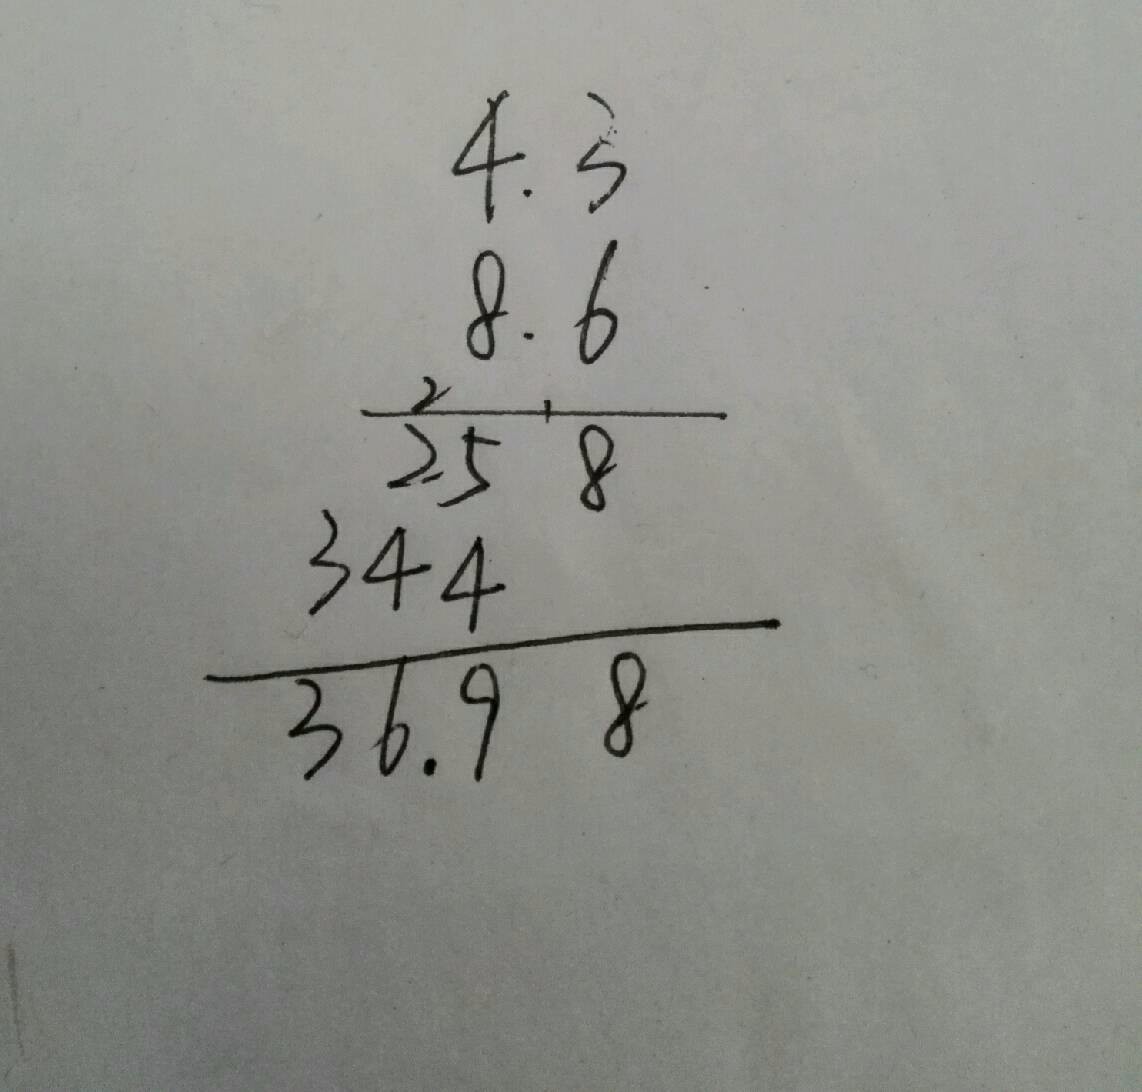 4.3
8.6
2
25 8
344
36.9 8